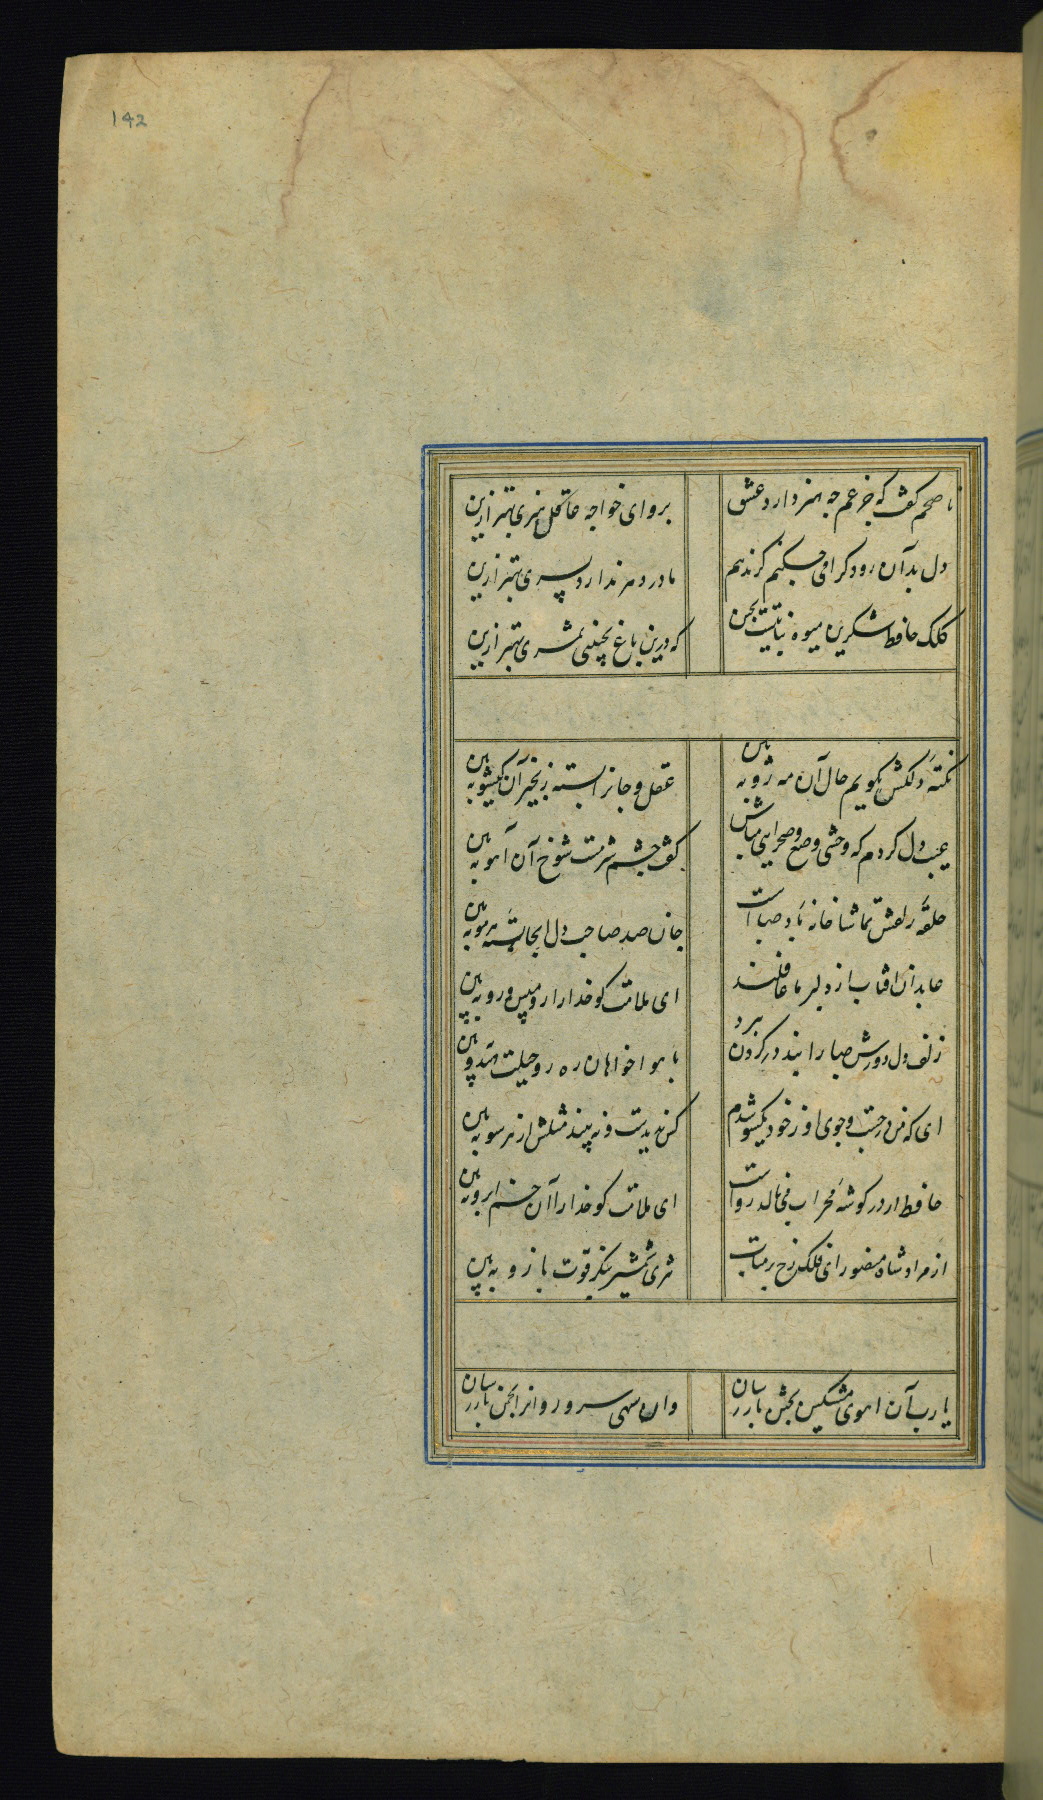 142
ناصحم گفت که جز غم چه هنر دارد عشق
برو ای خواجه عاقل هنری بهتر ازین
دل بدان رود گرامی چکنم گر ندهم
مادر دهر ندارد پسری بهتر ازین
کلک حافظ شکرین میوه نباتیست بچین
که درین باغ نبینی ثمری بهتر ازین
نکتهٔ دلکش بگویم حال آن مه رو ببین
عقل و جانرا بسته زنجیر آن گیسو ببین
عیب دل کردم که وحشی وضع و صحرایی مباش
گفت چشم شیر مست شوخ آن آهو ببین
حلقهٔ زلفش تماشا خانهٔ باد صباست
جان صد صاحب دل آنجا بستهٔ هر مو ببین
عابدان آفتاب از دلبر ما غافلند
ای ملامت گو خدا را رو مبین و رو ببین
زلف دل دزدش صبا را بند در گردن برد
با هواخواهان ره رو حیلت هندو ببین
ای که من در جست و جوی او ز خود یکسو شدم
کس ندیدست و نبیند مثلش از هر سو ببین
حافظ ار در گوشهٔ محراب می نالد رواست
ای ملامت گو خدا را آن خم ابرو ببین
از مراد شاه منصور ای فلک رخ بر متاب
تیزی شمشیر بنگر قوت بازو ببین
یارب آن آهوی مشکین بختن باز رسان
وان سهی سرو روانرا بچمن باز رسان